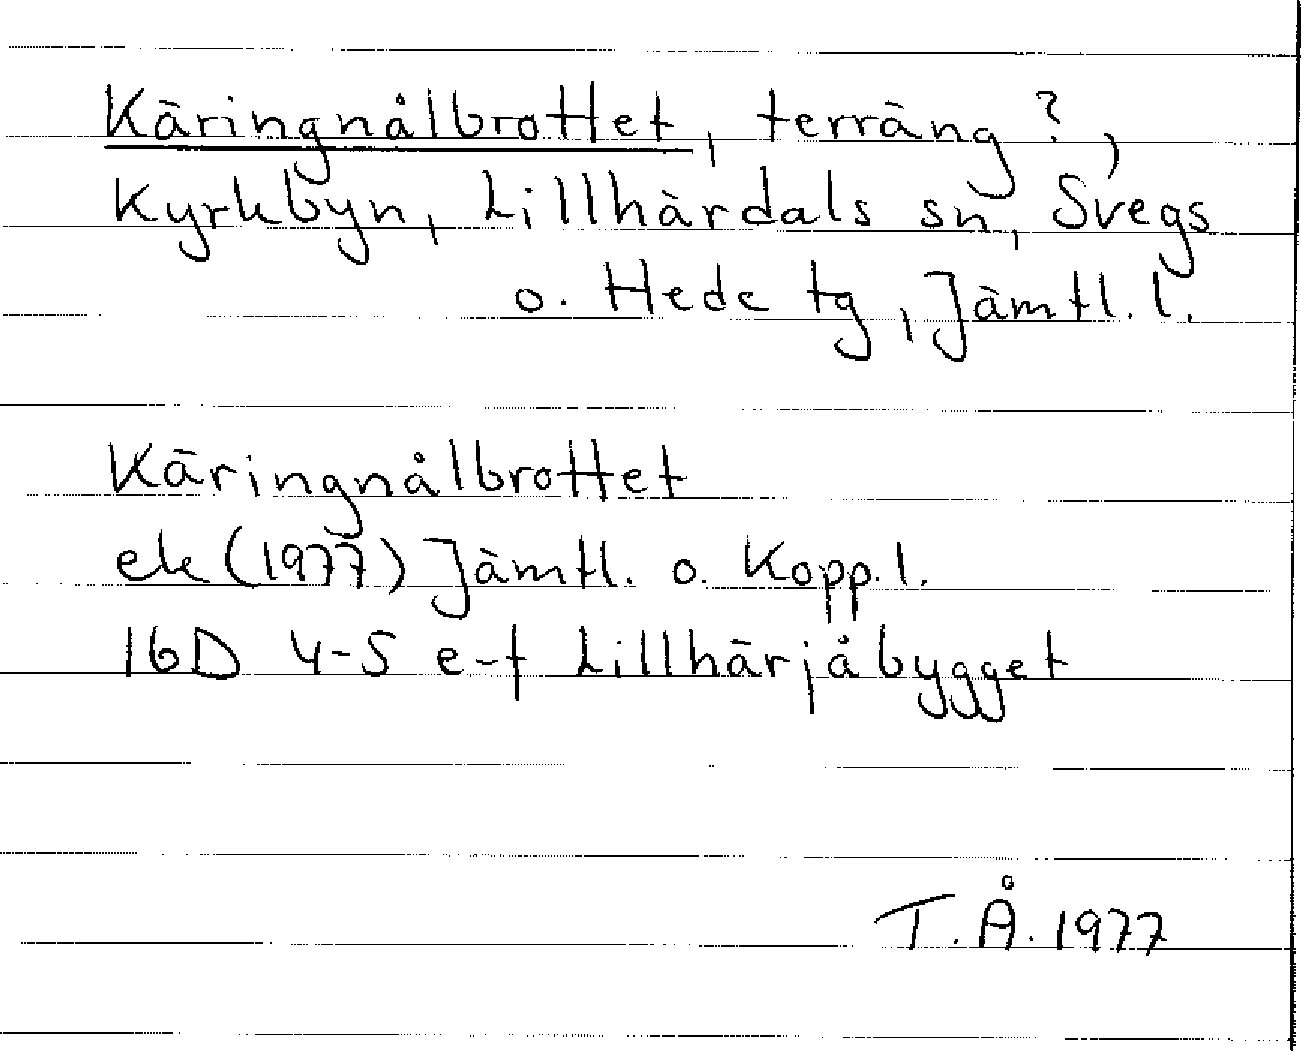 Käringnålbrottet, terräng?,
Kyrkbyn, Lillhärdals sn, Svegs
o. Hede tg, Jämtl. l.
Käringnålbrottet
ek (1977) Jämtl. o. Kopp. l.
16D 4-5 e-f Lillhärjåbygget
T.Å. 1977